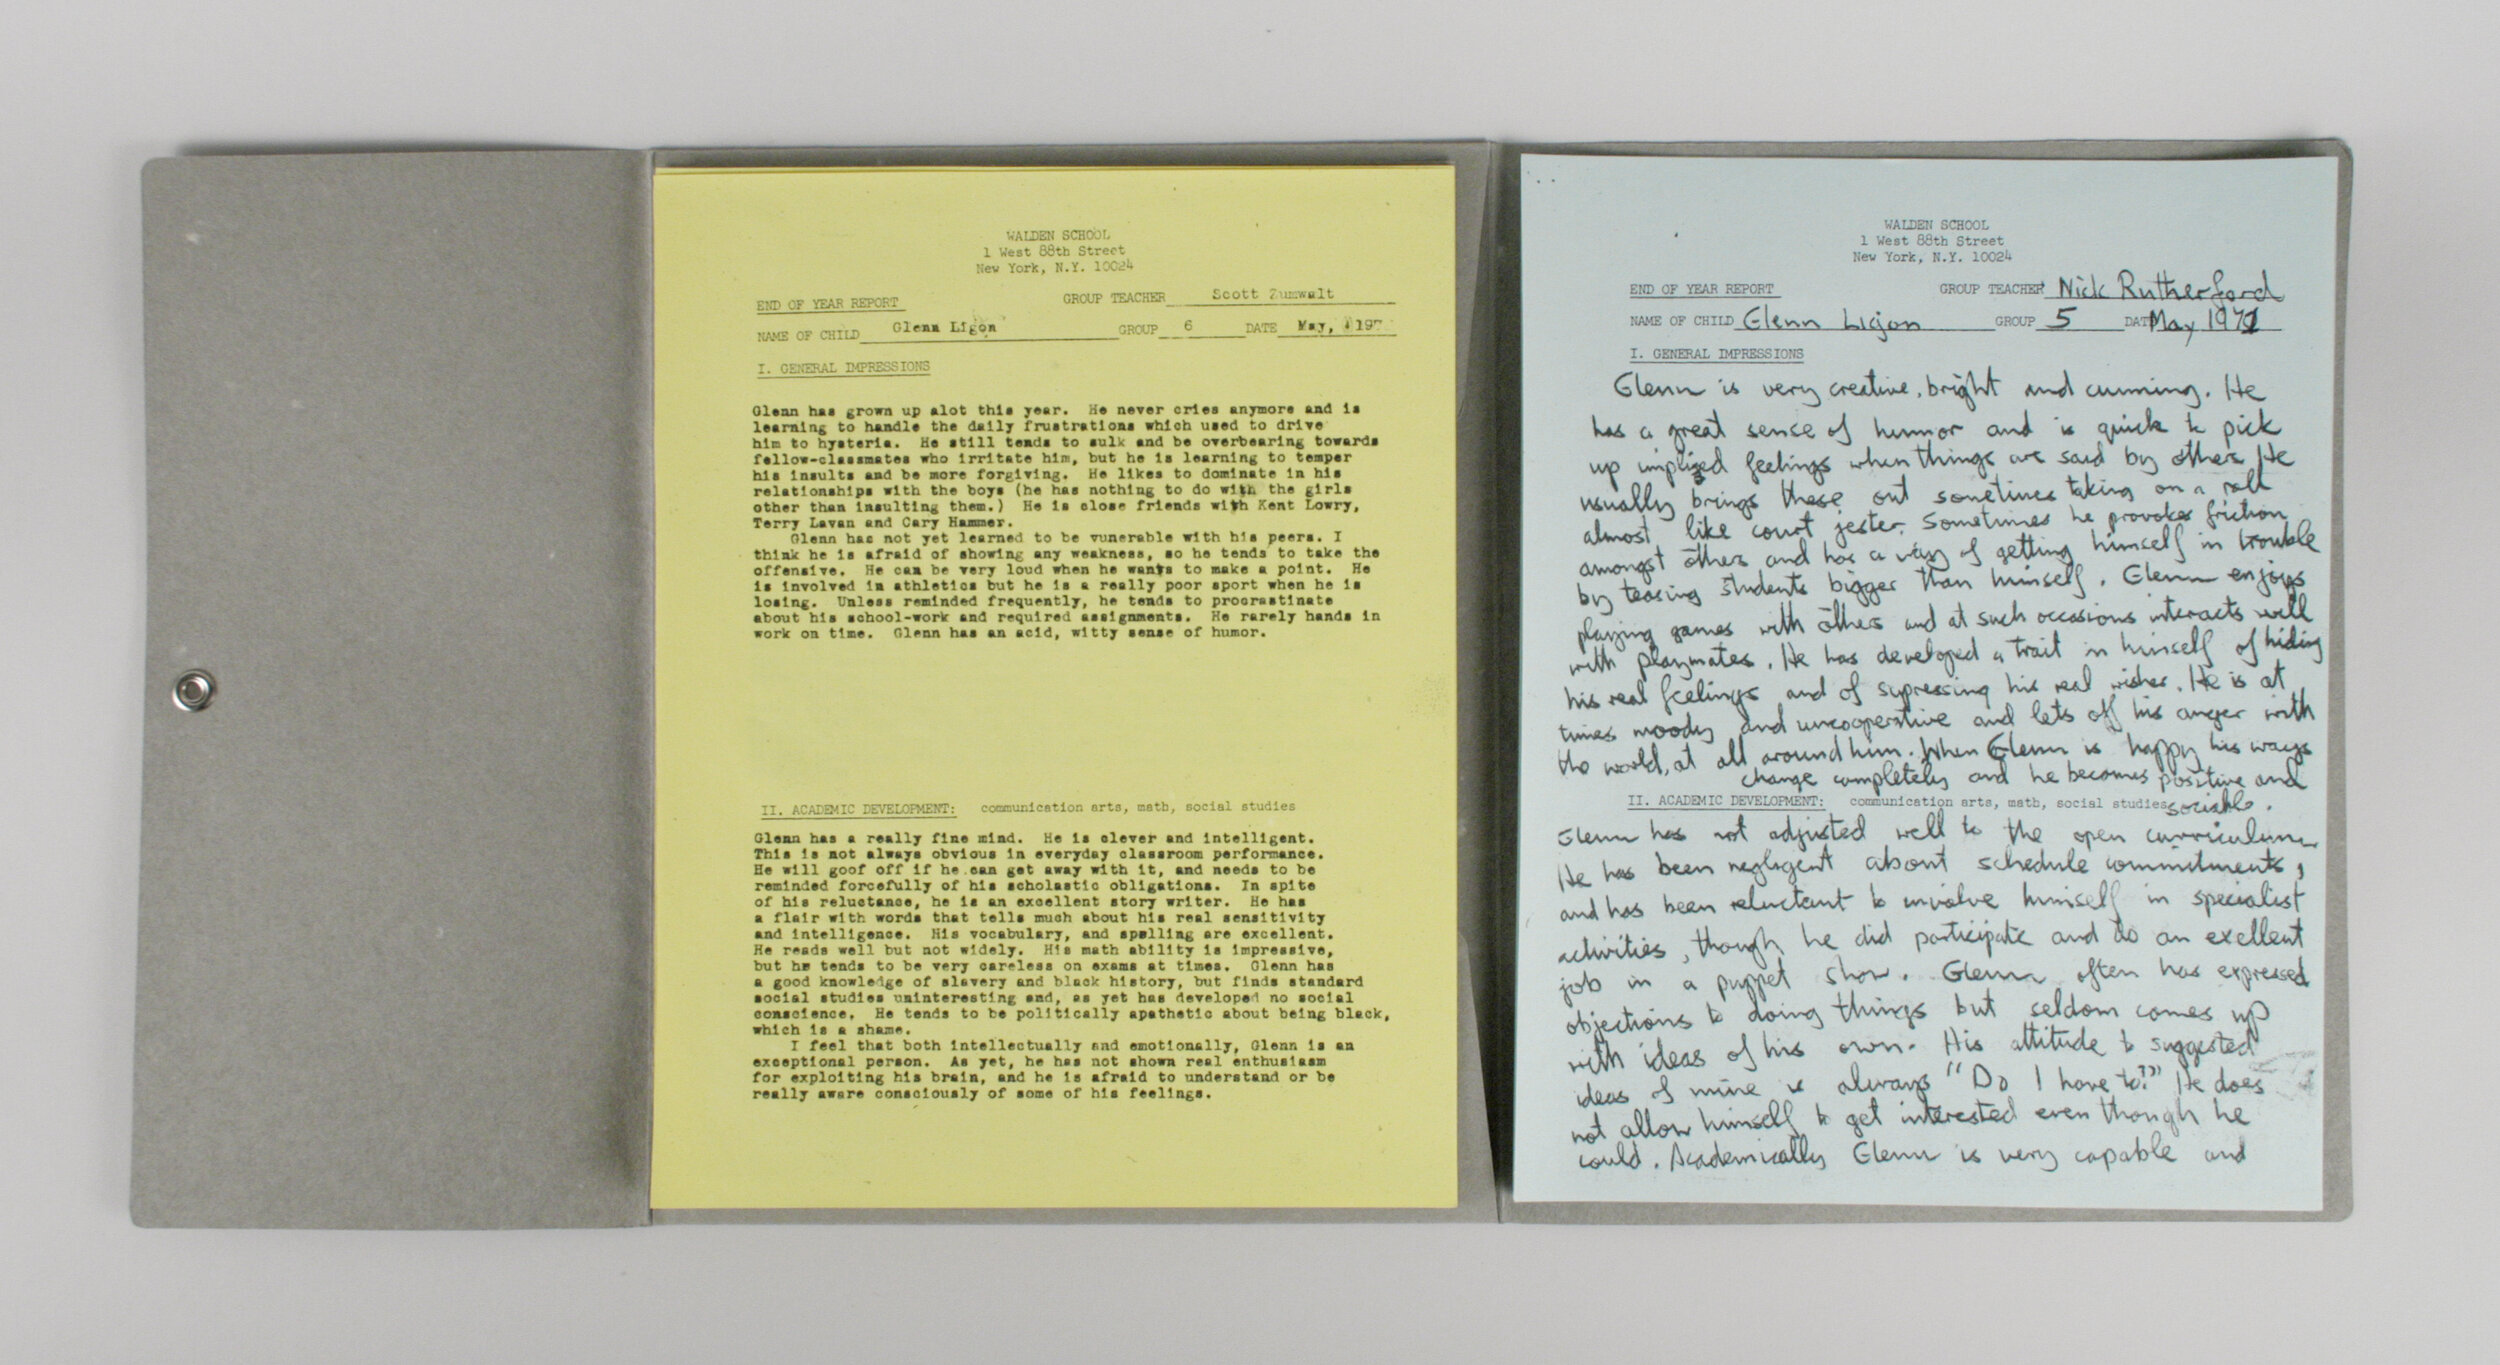 WALDEN SCHOOL
1 West 88th Street
New York, N.Y. 10024
END OF YEAR REPORT GROUP TEACHER Scott Zumwalt
NAME OF CHILD Glenn Ligon GROUP 6 DATE May, 197
I. GENERAL IMPRESSIONS
Glenn has grown up alot this year. He never cries anymore and is
learning to handle the daily frustrations which used to drive
him to hysteria. He still tends to sulk and be overbearing towards
fellow-classmates who irritate him, but he is learning to temper
his insults and be more forgiving. He likes to dominate in his
relationships with the boys (he has nothing to do with the girls
other than insulting them.) He is close friends with Kent Lowry,
Terry Lavan and Cary Hammer.
Glenn has not yet learned to be vunerable with his peers. I
think he is afraid of showing any weakness, so he tends to take the
offensive. He can be very loud when he wants to make a point. He
is involved in athletics but he is a really poor sport when he is
losing. Unless reminded frequently, he tends to procrastinate
about his school-work and required assignments. He rarely hands in
work on time. Glenn has an acid, witty sense of humor.
II. ACADEMIC DEVELOPMENT: communication arts, math, social studies
Glenn has a really fine mind. He is clever and intelligent.
This is not always obvious in everyday classroom performance.
He will goof off if he can get away with it, and needs to be
reminded forcefully of his scholastic obligations. In spite
of his reluctance, he is an excellent story writer. He has
a flair with words that tells much about his real sensitivity
and intelligence. His vocabulary, and spelling are excellent.
He reads well but not widely. His math ability is impressive,
but he tends to be very careless on exams at times. Glenn has
a good knowledge of slavery and black history, but finds standard
social studies uninteresting and, as yet has developed no social
conscience. He tends to be politically apathetic about being black,
which is a shame.
I feel that both intellectually and emotionally, Glenn is an
exceptional person. As yet, he has not shown real enthusiasm
for exploiting his brain, and he is afraid to understand or be
really aware consciously of some of his feelings.
WALDEN SCHOOL
1 West 88th Street
New York, N.Y. 10024
END OF YEAR REPORT GROUP TEACHER Nick Rutherford
NAME OF CHILD Glenn Ligon GROUP 5 DATE May 1971
I. GENERAL IMPRESSIONS
Glenn is very creative, bright and cunning. He
has a great sense of humor and is quick to pick
up implied feelings when things are said by others. He
usually brings these out sometimes taking on a roll
almost like court jester. Sometimes he provokes friction
amongst others and has a way of getting himself in trouble
by teasing students bigger than himself. Glenn enjoys
playing games with others and at such occasions interacts well
with playmates. He has developed a trait in himself of hiding
his real feelings and of supressing his real wishes. He is at
times moody and uncooperative and lets off his anger with
the world, at all around him. When Glenn is happy his ways
change completely and he becomes positive and
sociable.
II. ACADEMIC DEVELOPMENT: communication arts, math, social studies
Glenn has not adjusted well to the open curriculum.
He has been neglegent about schedule commitments,
and has been reluctant to involve himself in specialist
activities, though he did participate and do an exellent
job in a puppet show. Glenn often has expressed
objections to doing things but seldom comes up
with ideas of his own. His attitude to suggested
ideas of mine is always "Do I have to?" He does
not allow himself to get interested even though he
could. Academically Glenn is very capable and